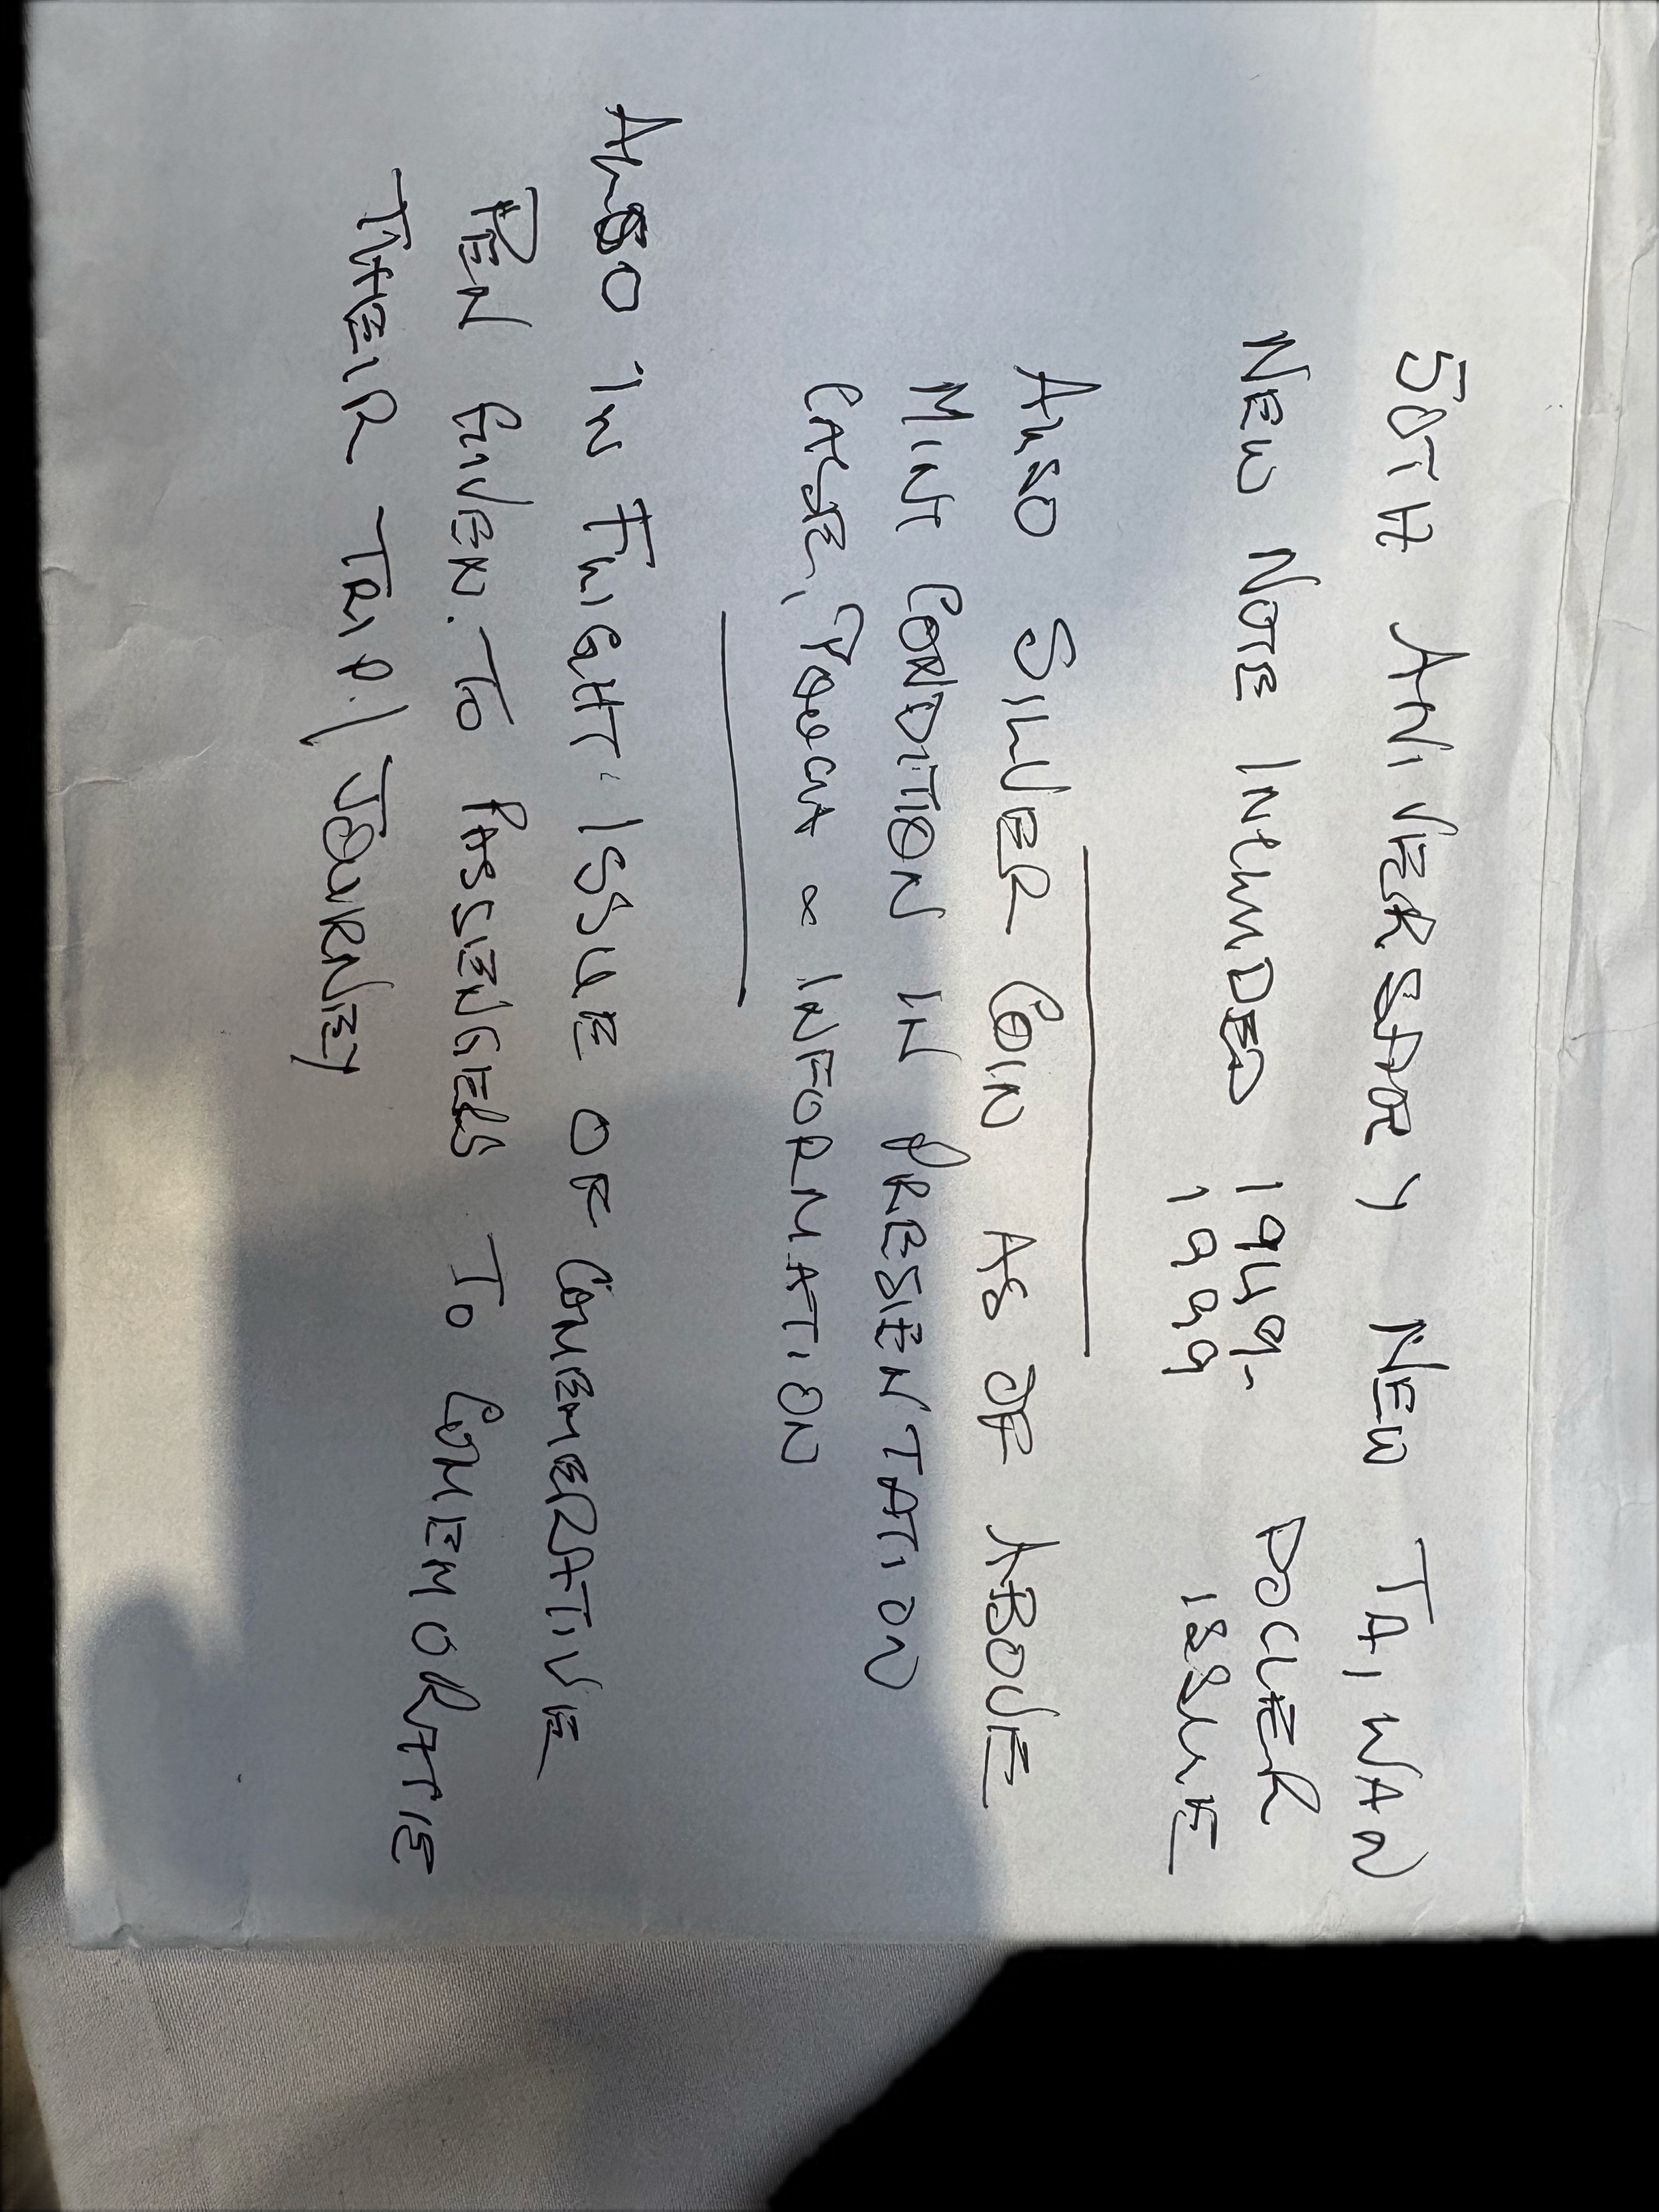 50TH ANIVERSARY NEW TAIWAN
NEW NOTE INCLUDED 1949- DOLLER
1999 ISSUE
ALSO SILVER COIN AS OF ABOVE
MINT CONDITION IN PRESENTATION
CASE, POUCH & INFORMATION
ALSO IN FLIGHT ISSUE OF COMEMERATIVE
PEN GIVEN. TO PASSENGERS TO COMEMORATE
THEIR TRIP./JOURNEY